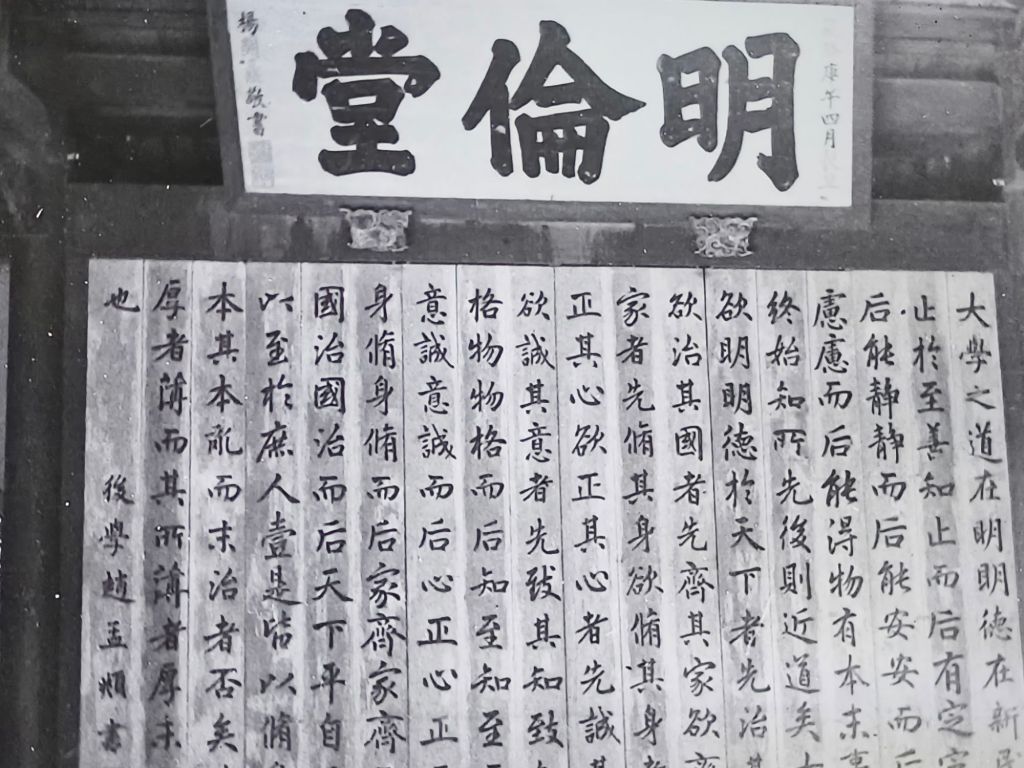 庚午四月
明倫堂
敬書
大學之道在明明德在新民
止於至善知止而后有定定
后能靜靜而后能安安而后
慮慮而后能得物有本末事
終始知所先後則近道矣
欲明明德於天下者先治其
欲治其國者先齊其家欲齊
家者先脩其身欲脩其身者
正其心欲正其心者先誠其
欲誠其意者先致其知致
格物物格而后知至知至
意誠意誠而后心正心正
身脩身脩而后家齊家齊
國治國治而后天下平自
以至於庶人壹是皆以脩
本其本亂而末治者否矣
厚者薄而其所薄者厚未
也
後學趙孟頫書